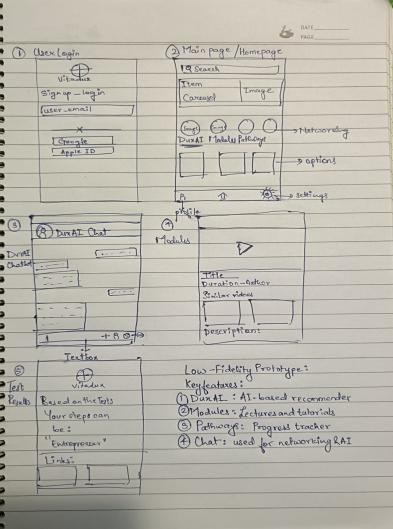 DATE
PAGE
① User Login
Vitadux
Signup_login
user_email
Google
Apple ID
② Main page / Homepage
Search
Item
Carousel
Image
DuxAI Modules Pathways
→ Networking
→ options
→ settings
profile
③
DuxAI Chat
DuxAI
Chatbot
Textbox
④
Modules
Title
Duration - Author
Similar videos
Description:
⑤
Test
Results
Vitadux
Based on the Tests
Your steps can
be:
"Entrepreneur"
Links:
Low-Fidelity Prototype:
Key features:
① DuxAI : AI-based recommender
② Modules: Lectures and tutorials
③ Pathways: Progress tracker
④ Chat: used for networking & AI